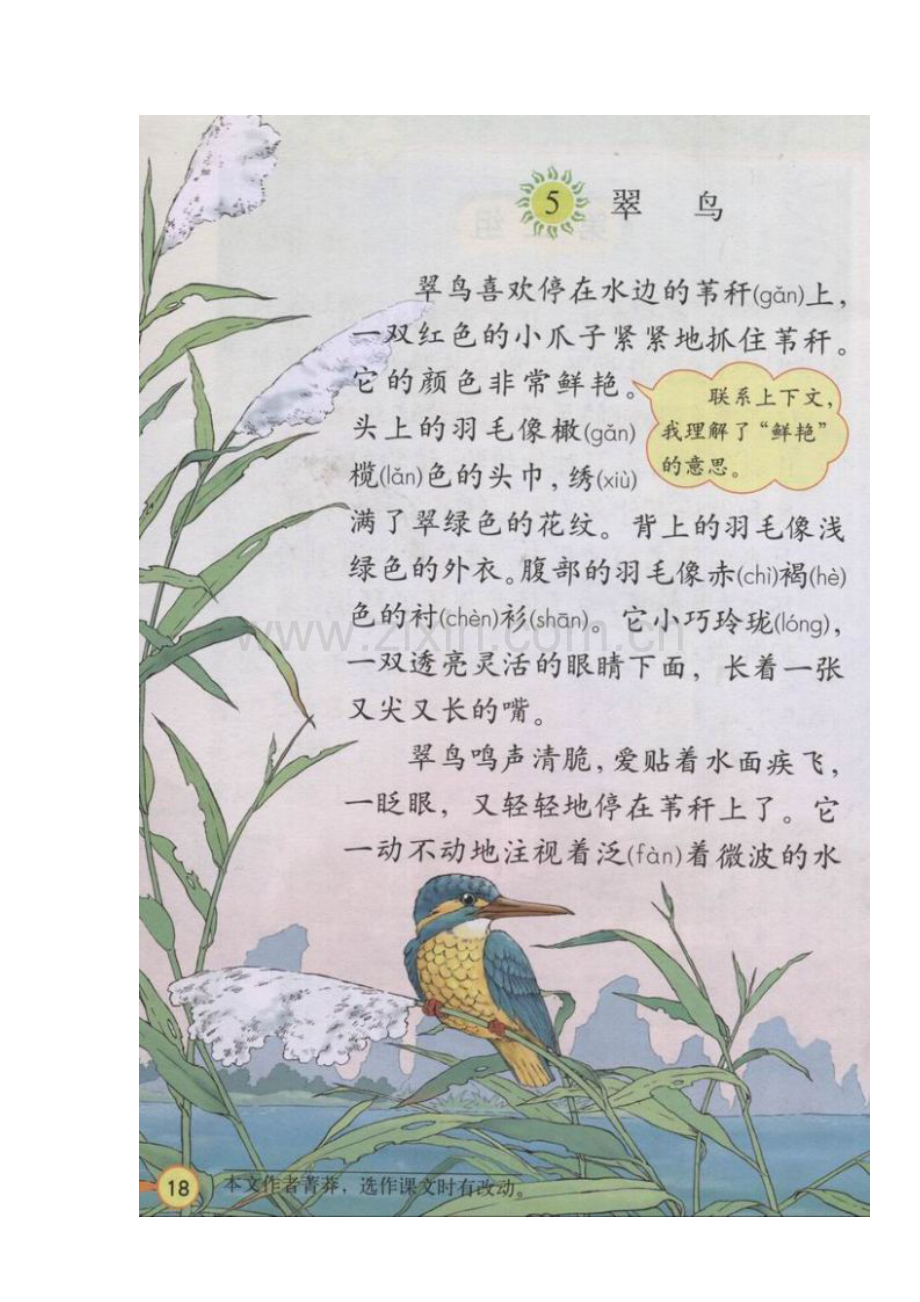 5 翠 鸟
翠鸟喜欢停在水边的苇秆(gǎn)上，
一双红色的小爪子紧紧地抓住苇秆。
它的颜色非常鲜艳。
头上的羽毛像橄(gǎn)
榄(lǎn)色的头巾，绣(xiù)
联系上下文，
我理解了“鲜艳”
的意思。
满了翠绿色的花纹。背上的羽毛像浅
绿色的外衣。腹部的羽毛像赤(chì)褐(hè)
色的衬(chèn)衫(shān)。它小巧玲珑(lóng)，
www.zixin.com.cn
一双透亮灵活的眼睛下面，长着一张
又尖又长的嘴。
翠鸟鸣声清脆，爱贴着水面疾飞，
一眨眼，又轻轻地停在苇秆上了。它
一动不动地注视着泛(fàn)着微波的水
18
本文作者菁莽，选作课文时有改动。